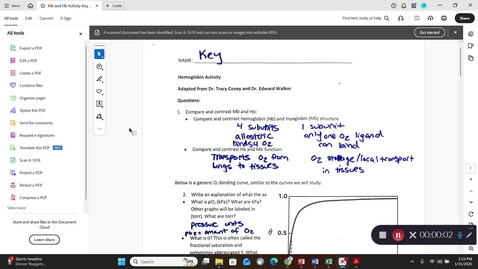 Mb and Hb Activity Key ...
Create
All tools
Edit
Convert
E-Sign
Find text, tools, or help.
Share
A scanned document has been identified, Scan & OCR tool can turn scans or images into editable PDFs.
Get started
All tools
Export a PDF
Edit a PDF
Create a PDF
Combine files
Organize pages
Stylize this PDF
Send for comments
Request e-signatures
Translate this PDF
Scan & OCR
Protect a PDF
Redact a PDF
Compress a PDF
Store and share files in the Document Cloud
Learn More
NAME: Key
Hemoglobin Activity
Adapted from Dr. Tracy Covey and Dr. Edward Walker
Questions:
1. Compare and contrast Mb and Hb:
• Compare and contrast hemoglobin (Hb) and myoglobin (Mb) structure
4 subunits
1 subunit
allosteric
only one O2 ligand
binds 4 O2
can bind
• Compare and contrast Hb and Mb function.
Transports O2 from
O2 storage/local transport
lungs to tissues
in tissues
Below is a generic O2-binding curve, similar to the curves we will study.
2. Write an explanation of what the as
• What is pO2 (kPa)? What are kPa?
Other graphs will be labeled in
(torr). What are torr?
pressure units
pO2= amount of O2
• What is θ? This is often called the
fractional saturation and
sometimes abbreviated Y. What
1.0
θ 0.5
00:00:02
Sports headline
Search
3:33 PM